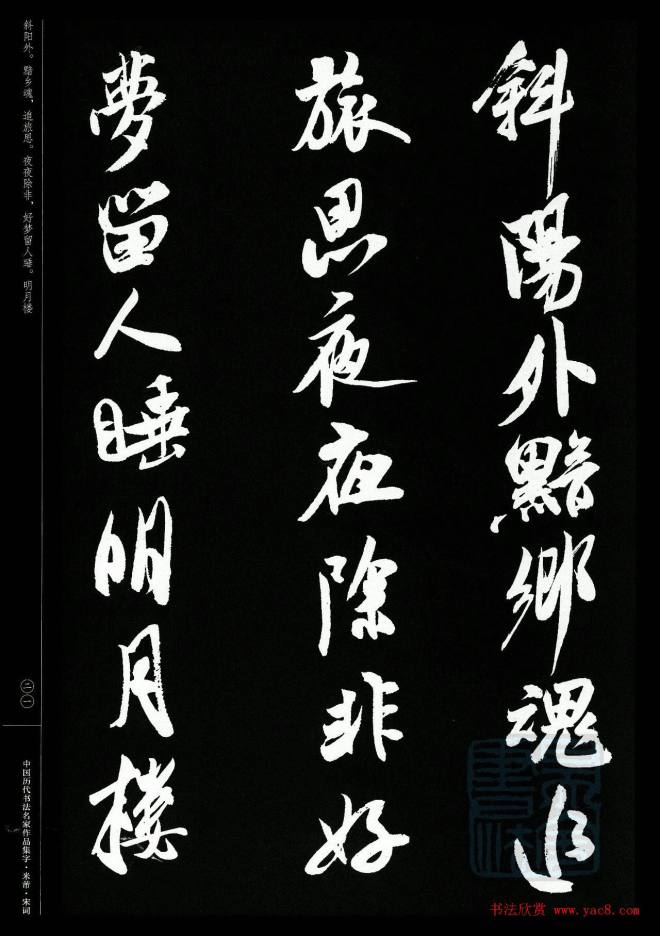 斜陽外黯鄉魂追
旅思夜夜除非好
夢留人睡明月樓
斜阳外。黯乡魂，追旅思。夜夜除非，好梦留人睡。明月楼
二一
中国历代书法名家作品集字·米芾·宋词
书法欣赏 www.yac8.com